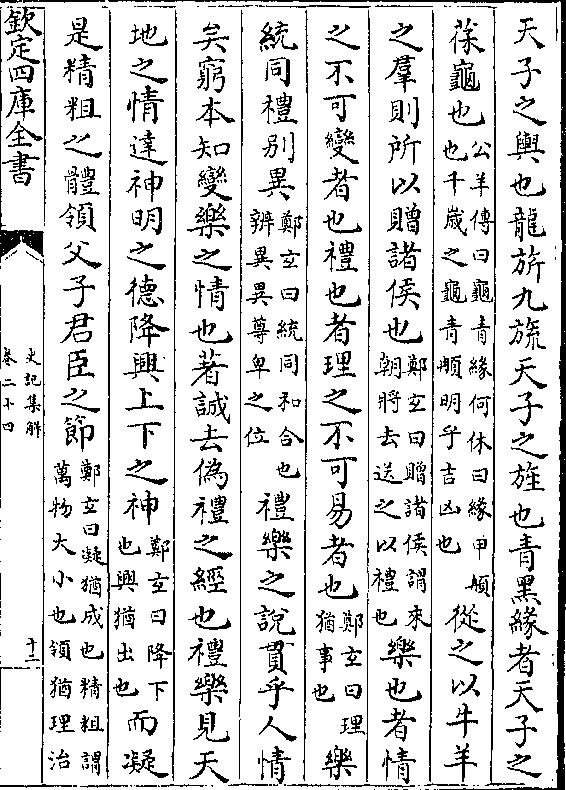 天子之輿也龍旂九旒天子之旌也青黑緣者天子之
葆龜也公羊傳曰龜青緣何休曰緣甲䫇也千歲之龜青䫇明乎吉凶也從之以牛羊
之羣則所以贈諸侯也鄭玄曰贈諸侯謂來朝將去送之以禮也樂也者情
之不可變者也禮也者理之不可易者也鄭玄曰理猶事也樂
統同禮別異鄭玄曰統同和合也辨異異尊卑之位禮樂之說貫乎人情
矣窮本知變樂之情也著誠去偽禮之經也禮樂見天
地之情達神明之德降興上下之神鄭玄曰降下也興猶出也而凝
是精粗之體領父子君臣之節鄭玄曰凝猶成也精粗謂萬物大小也領猶理治
欽定四庫全書
史記集解
卷二十四
十二